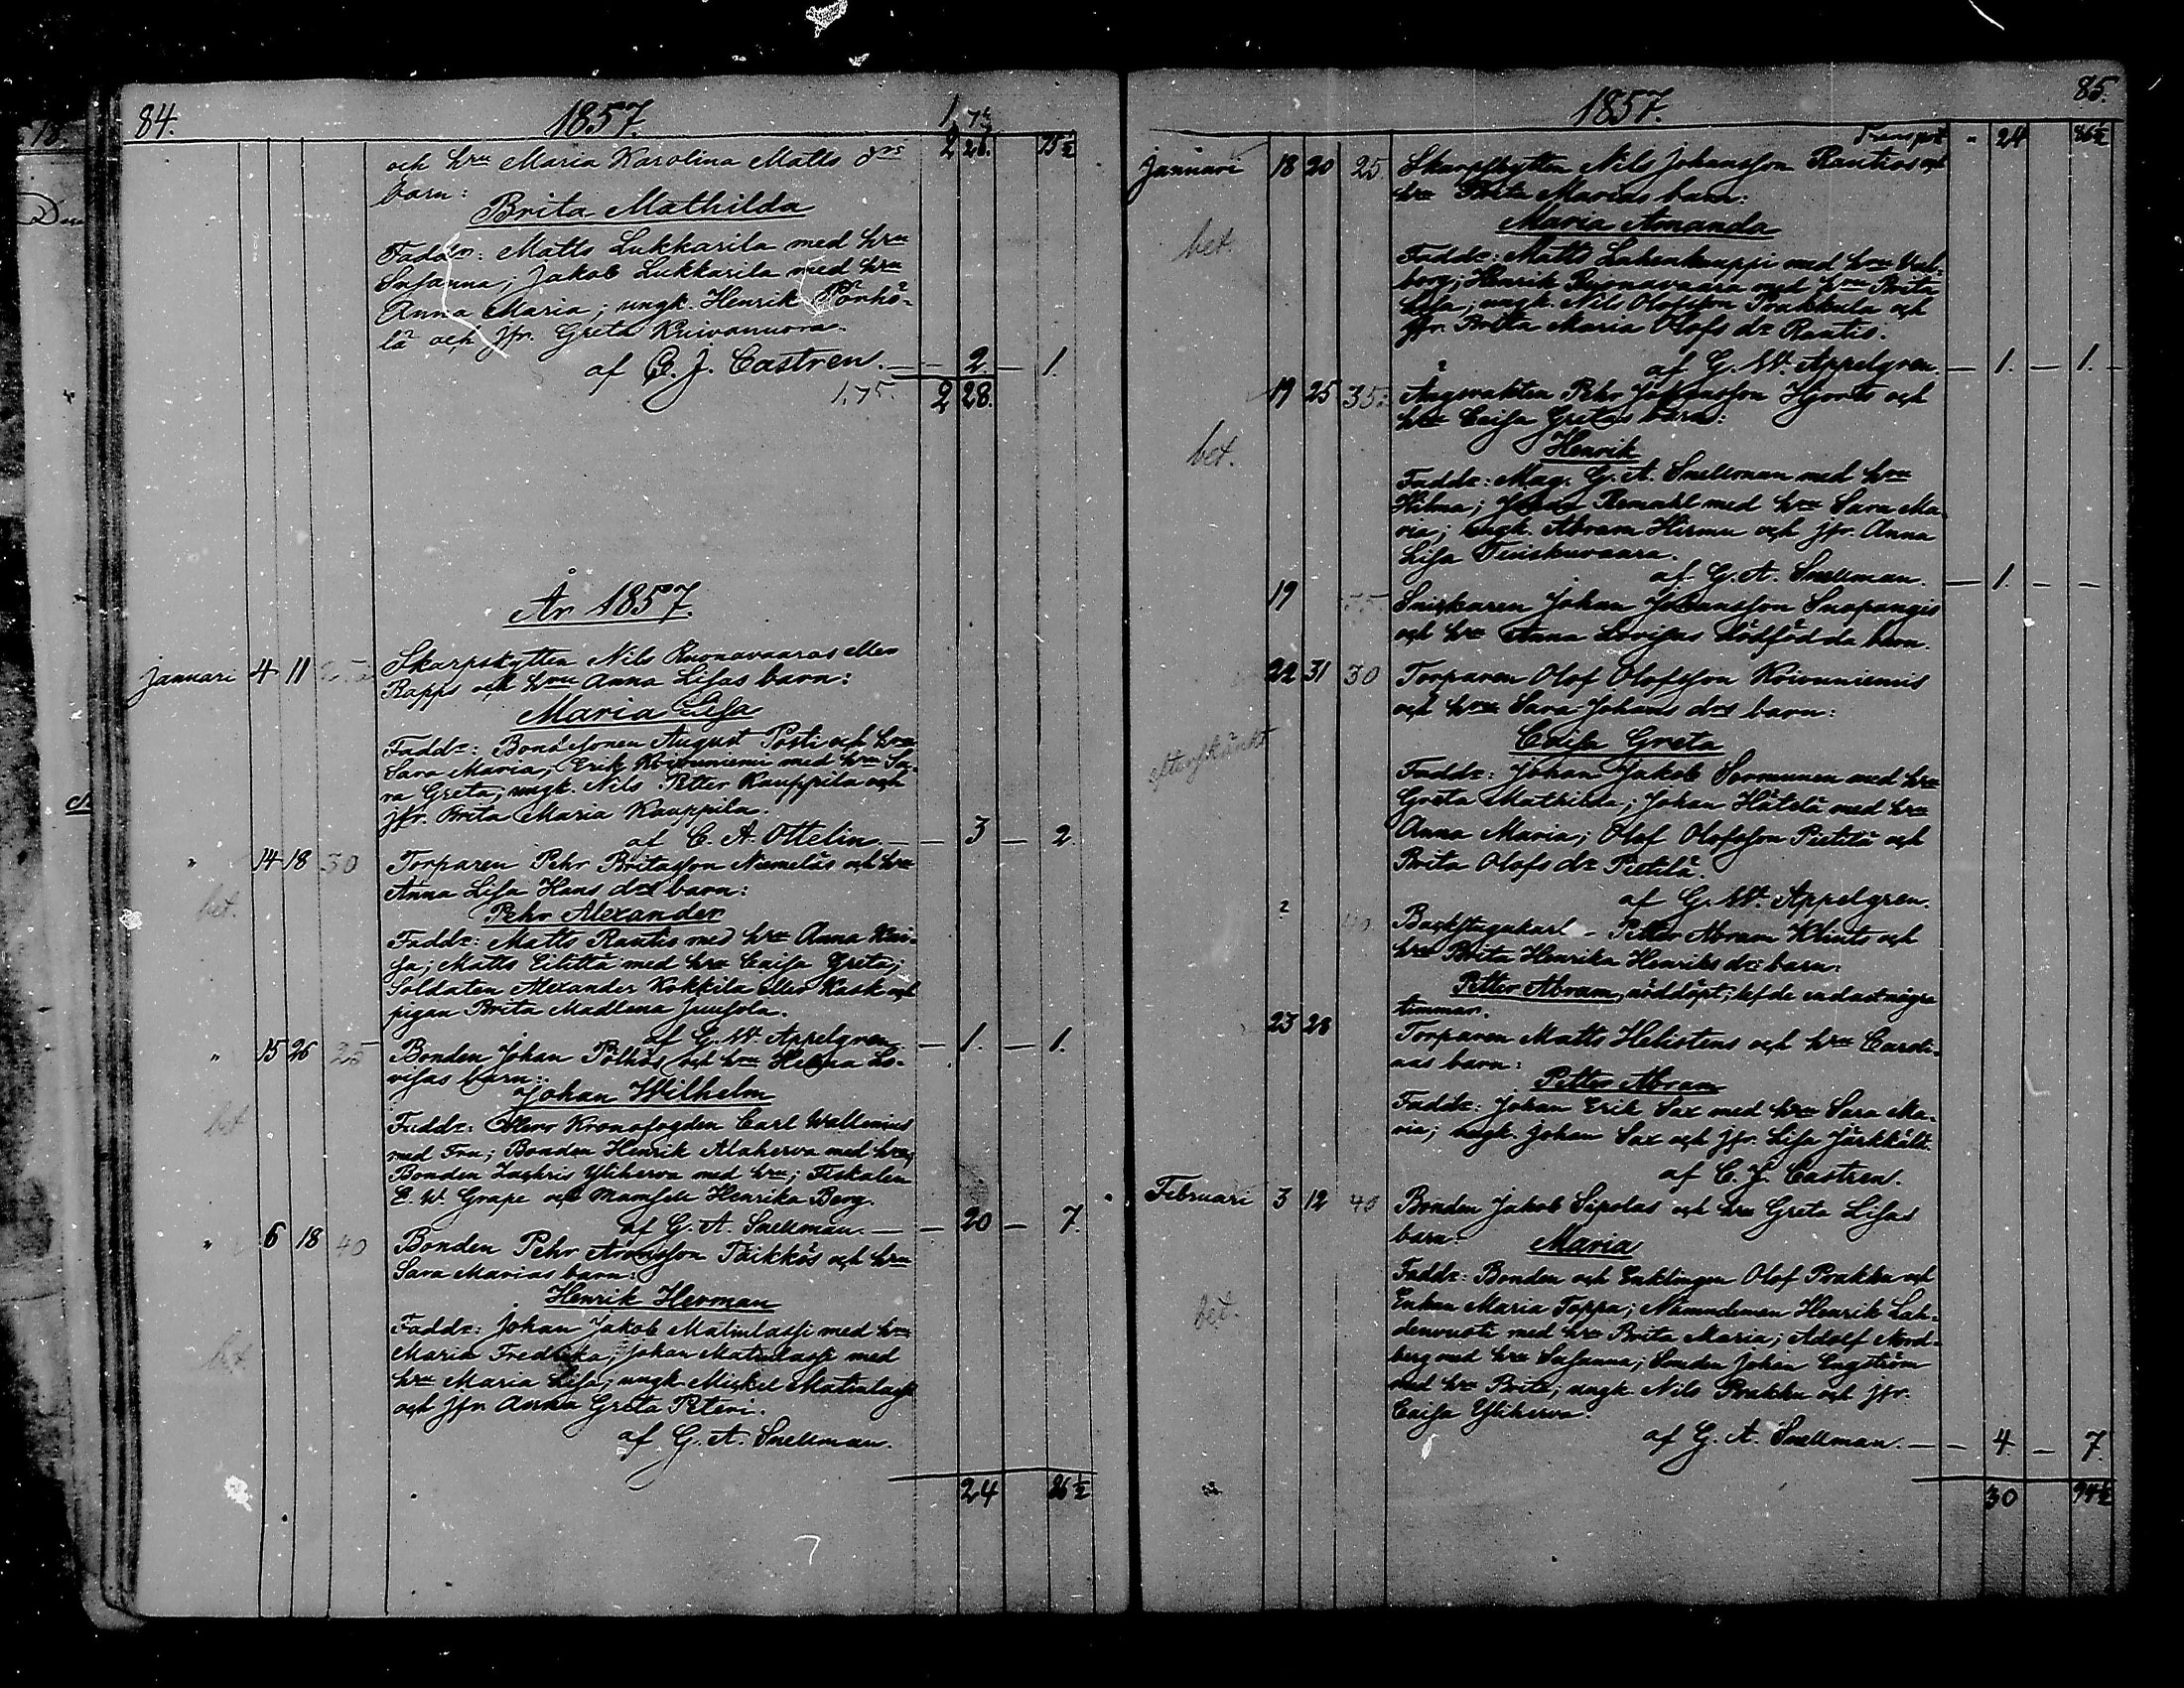 84. 1857.
1. 7½
2 26. 75½
och hru Maria Karolina Matts drs
barn:
Brita Mathilda
Faddr: Matts Lukkarila med hru
Susanna; Jakob Lukkarila med hru
Anna Maria; ungk. Henrik Pörhö-
lä och jfr. Greta Kuivanuora.
af C. J. Castren. — — 2. — 1.
1.75. 2 28.
År 1857.
Januari 4 11 Skarpskytten Nils Kuonavaaras eller
Rapps och hru Anna Lisas barn:
Maria Lisa
Faddr: Bondesonen August Posti och hru
Sara Maria; Erik Koivuniemi med hru Sa-
ra Greta; ungk. Nils Petter Kauppila och
jfr. Brita Maria Kauppila.
af C. A. Ottelin. — — 3 — 2.
" 14 18 30 Torparen Pehr Britasson Niemeläs och hru
Anna Lisa Hans drs barn:
bet.
Pehr Alexander
Faddr: Matts Rautio med hru Anna Kai-
sa; Matts Eilittä med hru Caisa Greta;
Soldaten Alexander Kokkila eller Kask och
pigan Brita Madlena Juusola.
af G. W. Appelgren — 1. — 1.
" 15 26 25 Bonden Johan Pölhös och hru Helena Lo-
visas barn:
Johan Wilhelm
bet
Faddr: Herr Kronofogden Carl Wallenius
med Fru; Bonden Henrik Alaherva med hru;
Bonden Zachris Yliherva med hru; Fiskalen
E. W. Grape och Mamsell Henrika Berg.
af G. A. Snellman. — — 20 — 7.
" 6 18 40 Bonden Pehr Aronsson Täikkös och hru
Sara Marias barn:
Henrik Herman
Faddr: Johan Jakob Matinlassi med hru
Maria Fredrika; Johan Matinlassi med
bet
hru Maria Lisa; ungk. Mickel Matinlassi
och jfr. Anna Greta Peteri.
af G. A. Snellman.
24 86½
1857. 85.
Transport " 24 86½
Januari 18 20 25. Skarpskytten Nils Johansson Rautios och
hru Brita Marias barn:
Maria Amanda
bet.
Faddr: Matts Lahenkauppi med hru Val-
borg; Henrik Kuonavaara med hru Brita
Lisa; ungk. Nils Olofsson Prakkula och
jfr. Brita Maria Olofs dr Rautio.
af G. W. Appelgren. — 1. — 1. —
19 25 35. Ångsvakten Pehr Johansson Hjorts och
hru Caisa Gretas barn:
bet.
Henrik
Faddr: Mag. G. A. Snellman med hru
Hilma; Johan Remahl med hru Sara Ma-
ria; ungk. Abram Hirmu och jfr. Anna
Lisa Tuiskuvaara.
af G. A. Snellman. — 1. — —
19 Snickaren Johan Johansson Suopangis
och hru Anna Lovisas dödfödda barn.
22 31 30 Torparen Olof Olofsson Koivuniemis
och hru Sara Johans drs barn:
Caisa Greta
efterskänkt
Faddr: Johan Jakob Sormunen med hru
Greta Mathilda; Johan Hätälä med hru
Anna Maria; Olof Olofsson Pietilä och
Brita Olofs dr Pietilä.
af G. W. Appelgren.
? 40. Backstugukarl Petter Abram Klints och
hru Brita Henrika Henriks drs barn:
Petter Abram, nöddöpt; lefde endast några
timmar.
23 28 Torparen Matts Helistens och hru Caroli-
nas barn:
Petter Abram
Faddr: Johan Erik Sax med hru Sara Ma-
ria; ungk. Johan Sax och jfr. Lisa Järkkält.
af C. J. Castren.
Februari 3 12 40 Bonden Jakob Sipolas och hru Greta Lisas
barn: Maria
Faddr: Bonden och Enklingen Olof Prakku och
Enkan Maria Toppa; Nämndeman Henrik Lah-
denvuoti med hru Brita Maria; Adolf Nord-
bet.
berg med hru Susanna; Smeden Johan Engström
med hru Brita; ungk. Nils Prakku och jfr.
Caisa Yliherva.
af G. A. Snellman. — — 4. — 7.
30 94½